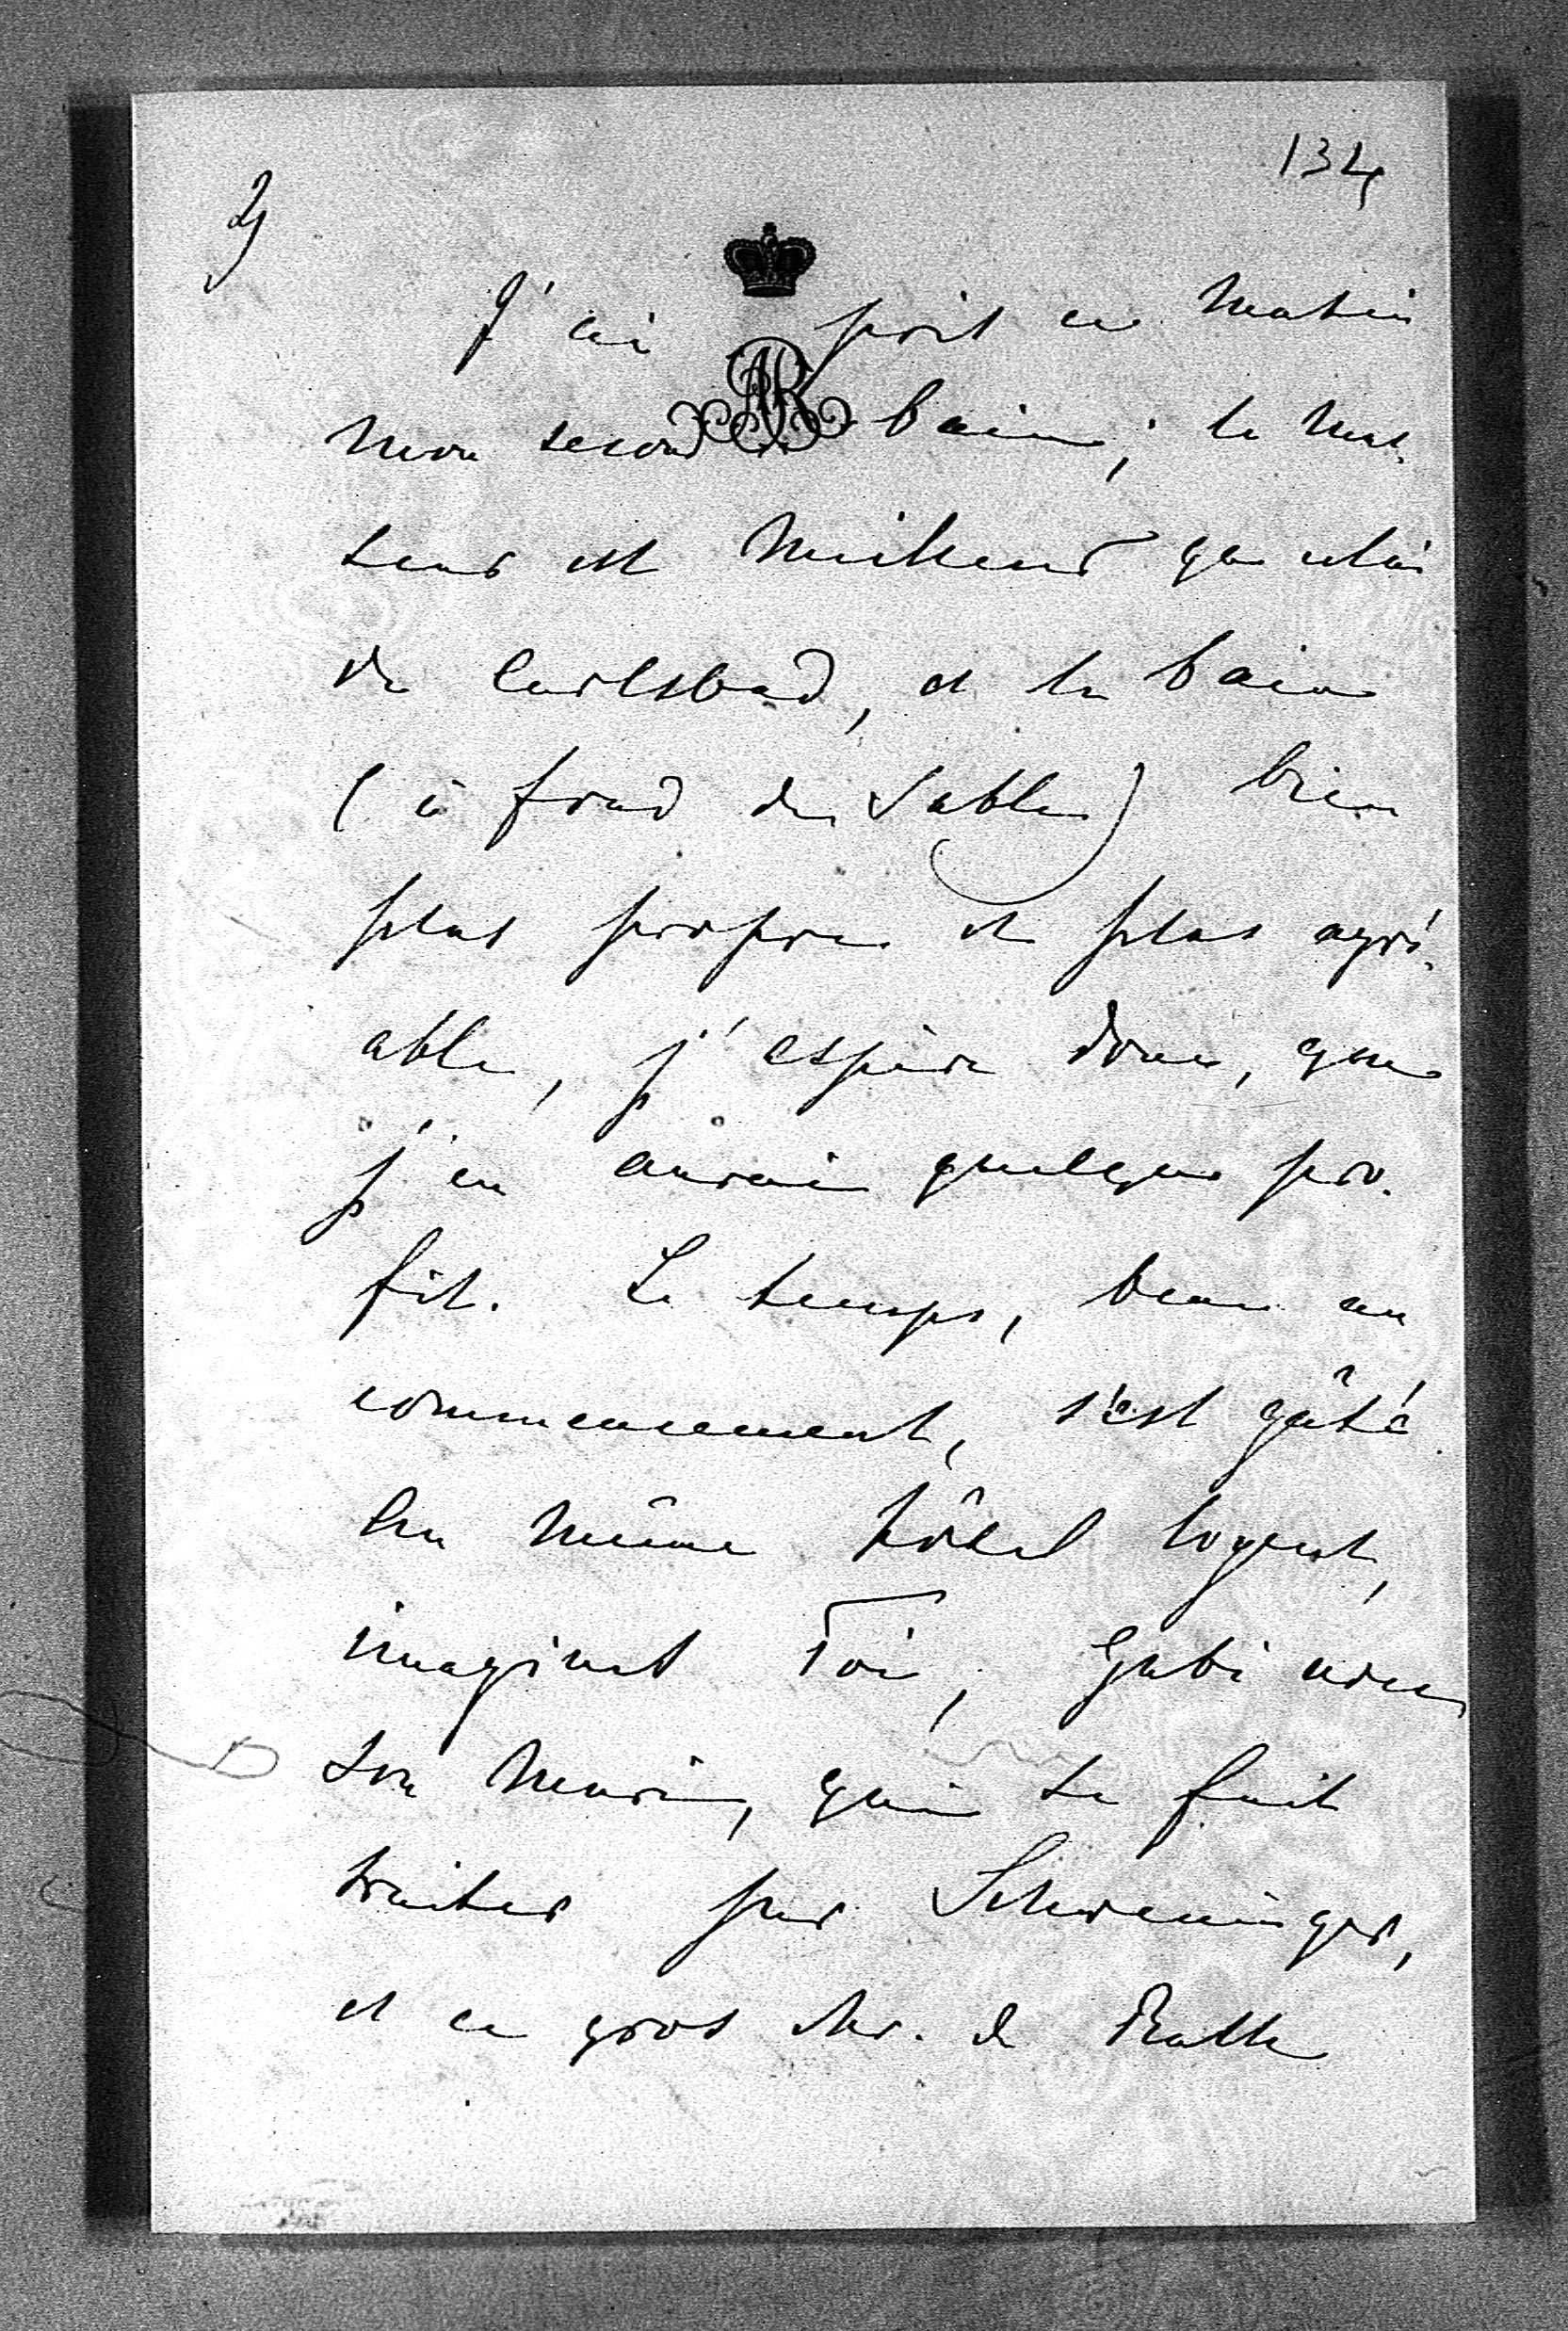 134
2)
J'ai pris ce matin
mon second bain; le mas-
seur est meilleur que celui
de Carlsbad, et le bain
(à fond de sable) bien
plus propre et plus agré-
able, j'espère donc, que
j'en aurai quelque pro-
fit. Le temps, beau au
commencement, s'est gâté.
Au même hôtel logent,
imagines Toi, Gabi avec
son mari, qui se fait
traiter par Schweninger,
et ce gros Mr. de